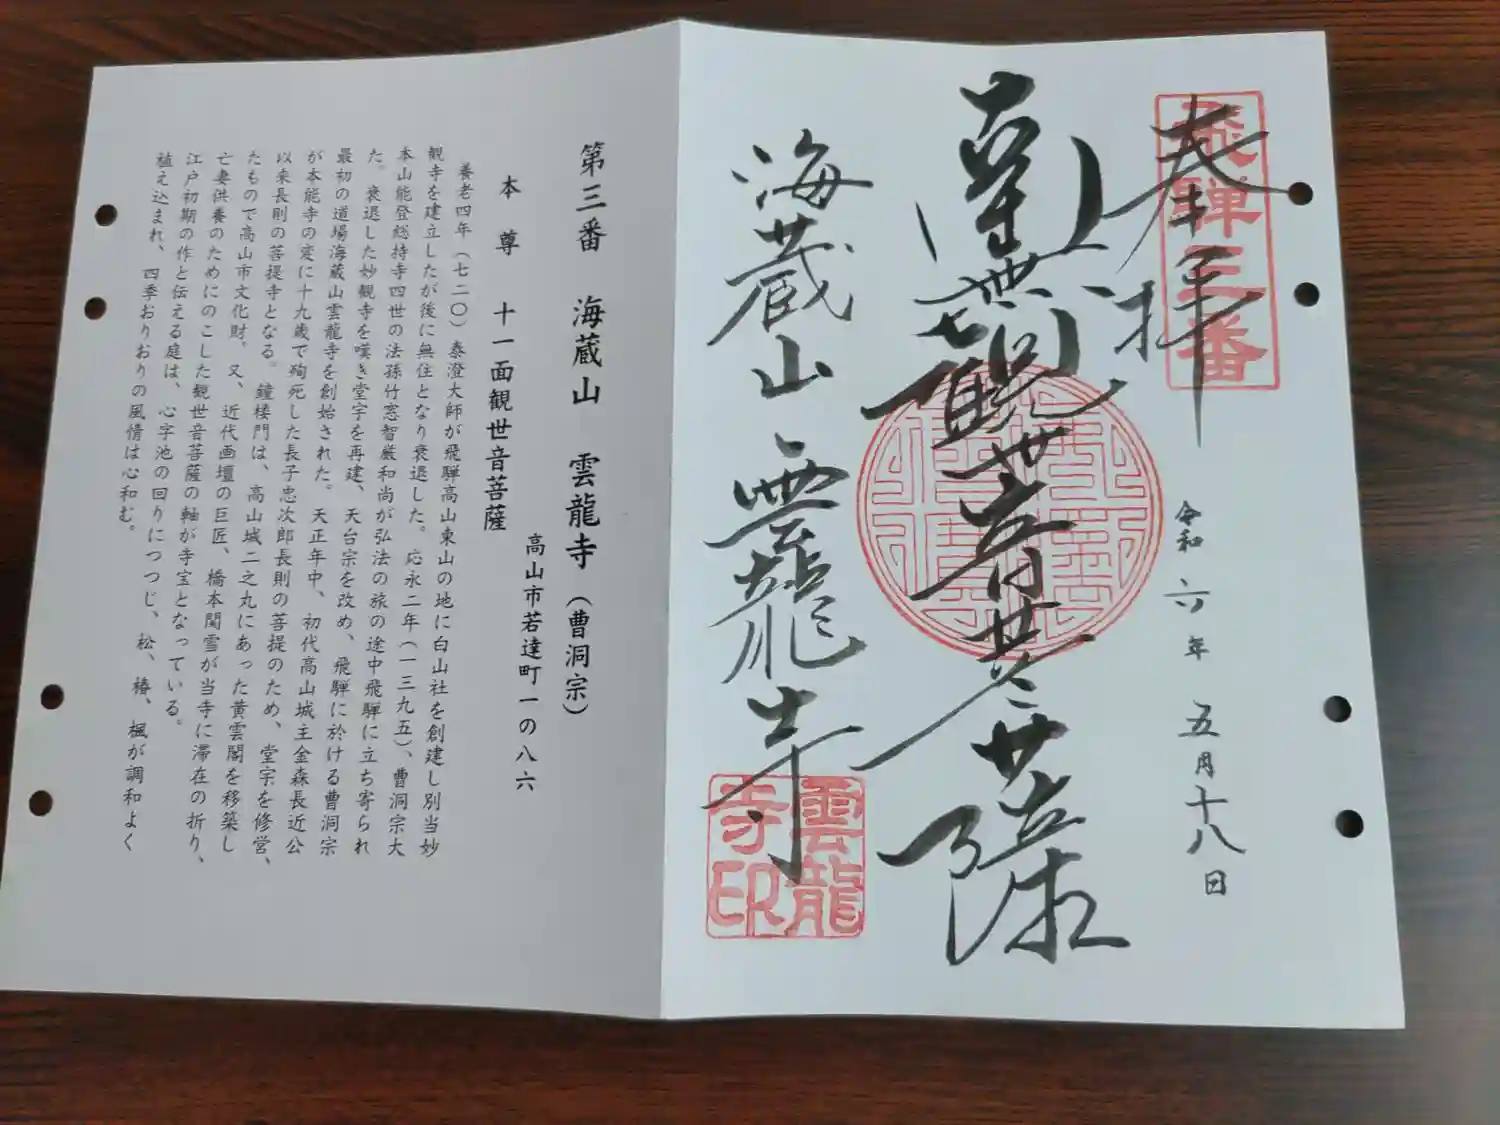 奉拝
飛騨三番
令和六年五月十八日
南無観世音菩薩
海蔵山雲龍寺
雲龍寺印
第三番 海蔵山 雲龍寺(曹洞宗)
高山市若達町一の八六
本尊 十一面観世音菩薩
養老四年(七二〇)泰澄大師が飛騨高山東山の地に白山社を創建し別当妙
観寺を建立したが後に無住となり衰退した。応永二年(一三九五)、曹洞宗大
本山能登総持寺四世の法孫竹窓智厳和尚が弘法の旅の途中飛騨に立ち寄られ
た。衰退した妙観寺を嘆き堂宇を再建、天台宗を改め、飛騨に於ける曹洞宗
最初の道場海蔵山雲龍寺を創始された。天正年中、初代高山城主金森長近公
が本能寺の変に十九歳で殉死した長子忠次郎長則の菩提のため、堂宇を修営、
以来長則の菩提寺となる。鐘楼門は、高山城二之丸にあった黄雲閣を移築し
たもので高山市文化財。又、近代画壇の巨匠、橋本関雪が当寺に滞在の折り、
亡妻供養のためにのこした観世音菩薩の軸が寺宝となっている。
江戸初期の作と伝える庭は、心字池の回りにつつじ、松、椿、楓が調和よく
植え込まれ、四季おりおりの風情は心和む。